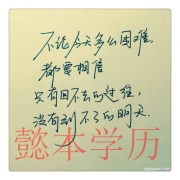 不论今天多么困难,
都要相信
只有回不去的过往,
没有到不了的明天.
懿本学历